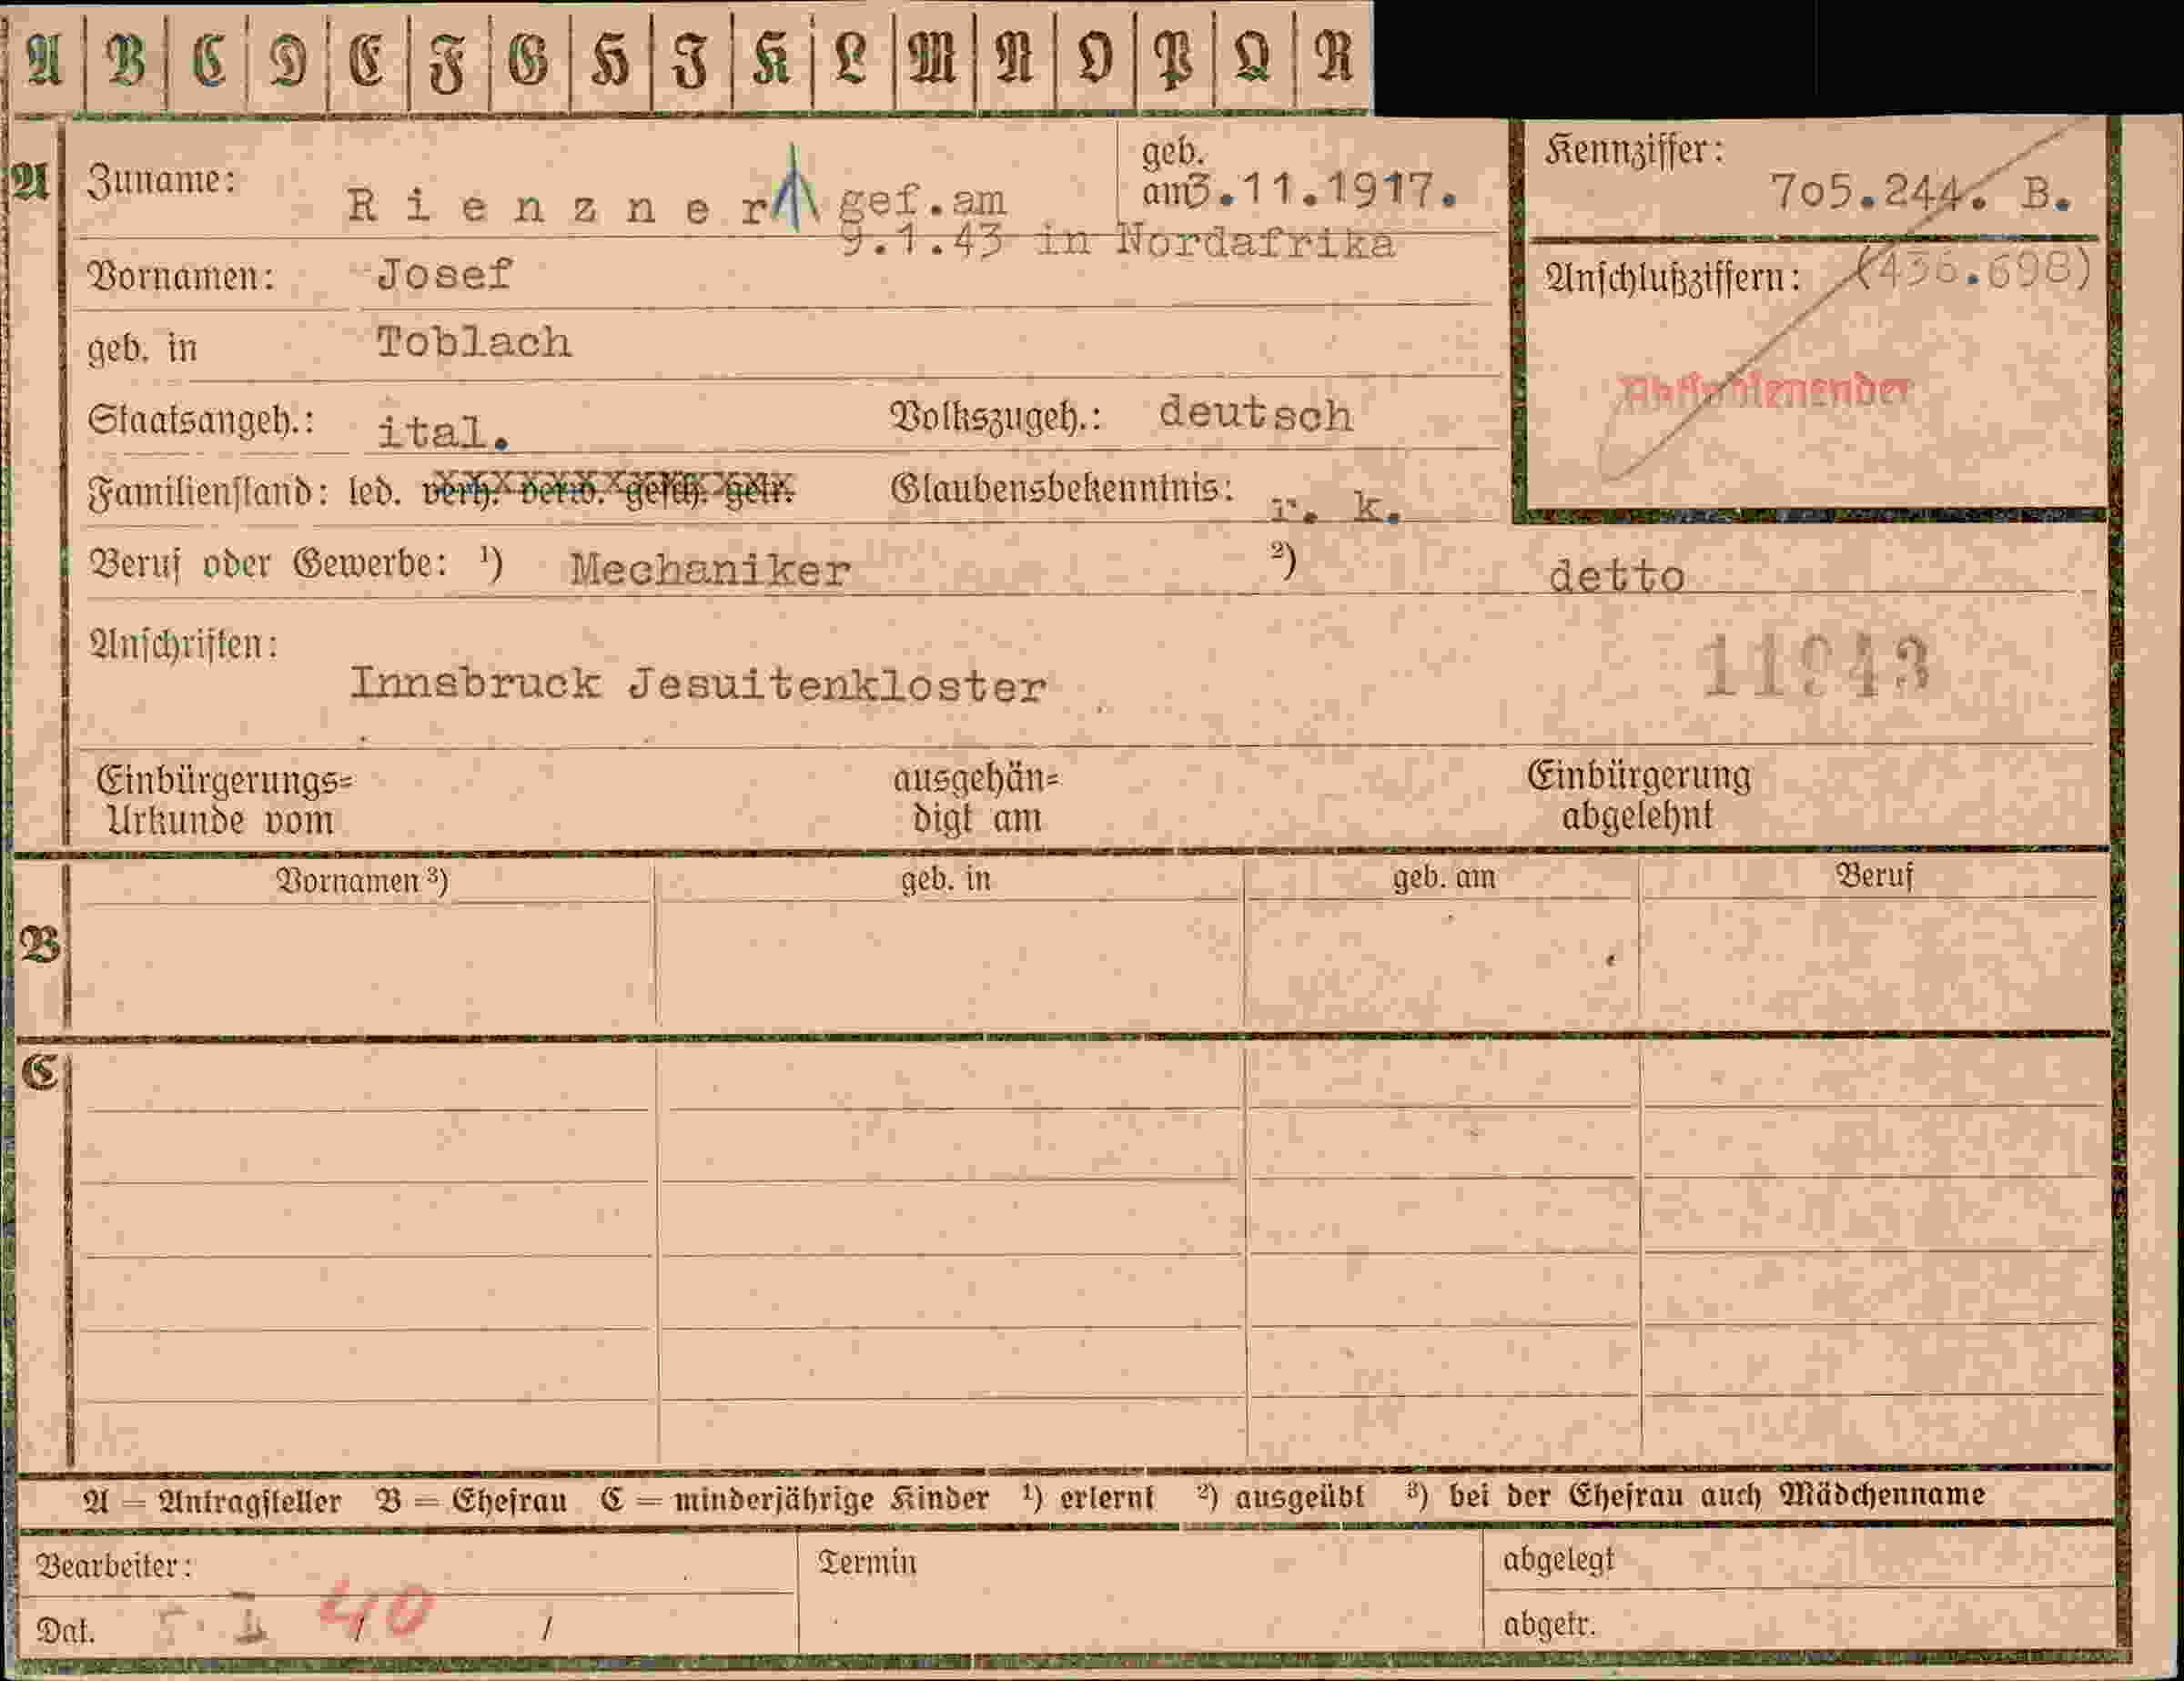 A B C D E F G H I K L M N O P Q R
A
Zuname: Rienzner gef.am
geb. am 3.11.1917.
9.1.43 in Nordafrika
Kennziffer: 705.244. B.
Vornamen: Josef
Anschlußziffern: (436.698)
geb. in Toblach
Staatsangeh.: ital. Volkszugeh.: deutsch
Familienstand: led. verh. verw. gesch. getr. Glaubensbekenntnis: r. k.
Beruf oder Gewerbe: ¹) Mechaniker ²) detto
Anschriften:
Innsbruck Jesuitenkloster
11943
Einbürgerungs=
Urkunde vom
ausgehän=
digt am
Einbürgerung
abgelehnt
B
Vornamen ³) geb. in geb. am Beruf
C
A = Antragsteller B = Ehefrau C = minderjährige Kinder ¹) erlernt ²) ausgeübt ³) bei der Ehefrau auch Mädchenname
Bearbeiter: Termin abgelegt
Dat. 40 / / abgetr.